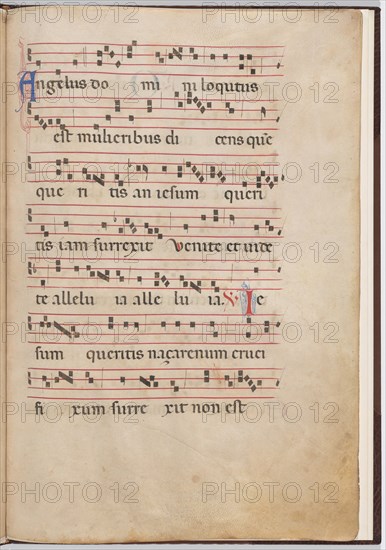 Angelus do mi ni loqutus
est mulieribus di cens que
que ri tis an iesum queri
tis iam surrexit Venite et uide
te allelu ia alle lu ia. V Ie
sum queritis naçarenum cruci
fi xum surre xit non est
PHOTO 12